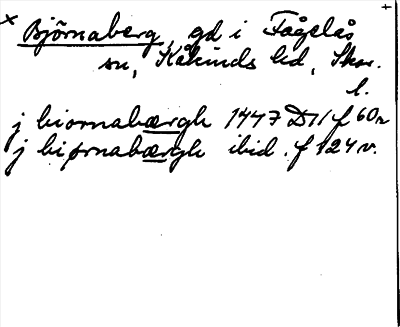 × Björnaberg, gd i Fågelås +
sn, Kåkinds hd, Skar.
l.
j biornabærgh 1447 D 11 f 60r
j biørnabærgh ibid. f 124 v.